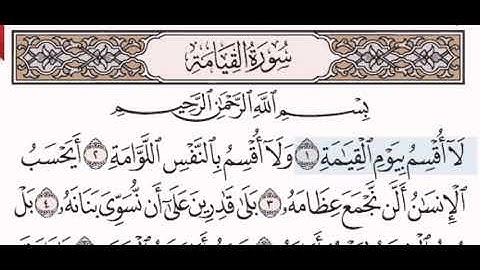 سُورَةُ الْقِيَامَةِ
بِسْمِ اللَّهِ الرَّحْمَٰنِ الرَّحِيمِ
لَآ أُقْسِمُ بِيَوْمِ الْقِيَٰمَةِ ١ وَلَآ أُقْسِمُ بِالنَّفْسِ اللَّوَّامَةِ ٢ أَيَحْسَبُ
الْإِنسَٰنُ أَلَّن نَّجْمَعَ عِظَامَهُۥ ٣ بَلَىٰ قَٰدِرِينَ عَلَىٰٓ أَن نُّسَوِّىَ بَنَانَهُۥ ٤ بَلْ